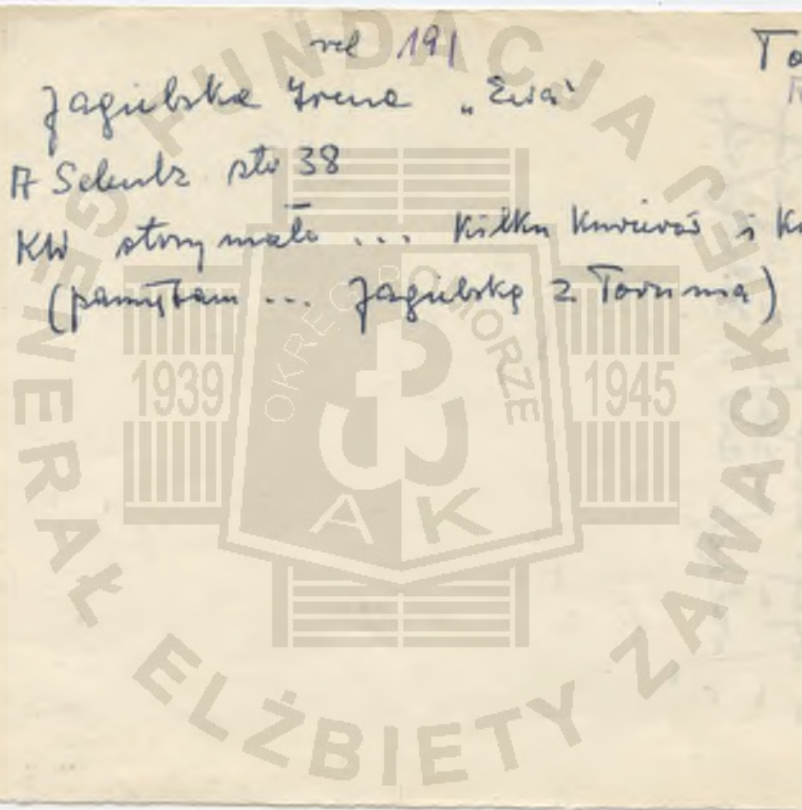 rel 191
To
Jagielska Irena „Ewa"
A Schulz str 38
KW otrzymało ... kilku kurierów i K
(pamiętam ... Jagielską z Torunia)
FUNDACJA GENERAŁ ELŻBIETY ZAWACKIEJ
OKRĘG POMORZE
1939 1945
AK